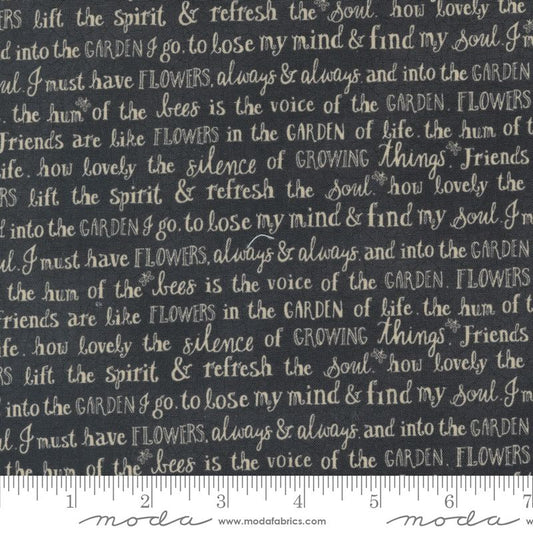 RS lift the spirit & refresh the soul. how lovely the
d into the GARDEN I go. to lose my mind & find my soul. I m
ul. I must have FLOWERS, always & always. and into the GARDEN
. the hum of the bees is the voice of the GARDEN. FLOWERS
Friends are like FLOWERS in the GARDEN of life. the hum of t
ife. how lovely the silence of GROWING things. Friends
RS lift the spirit & refresh the soul. how lovely the
d into the GARDEN I go. to lose my mind & find my soul. I m
ul. I must have FLOWERS, always & always. and into the GARDEN
. the hum of the bees is the voice of the GARDEN. FLOWERS
riends are like FLOWERS in the GARDEN of life. the hum of t
fe. how lovely the silence of GROWING things. Friends
RS lift the spirit & refresh the soul. how lovely the
d into the GARDEN I go. to lose my mind & find my soul. I m
l. I must have FLOWERS, always & always. and into the GARDEN
the hum of the bees is the voice of the GARDEN. FLOWERS
1 2 3 4 5 6 7
moda www.modafabrics.com moda